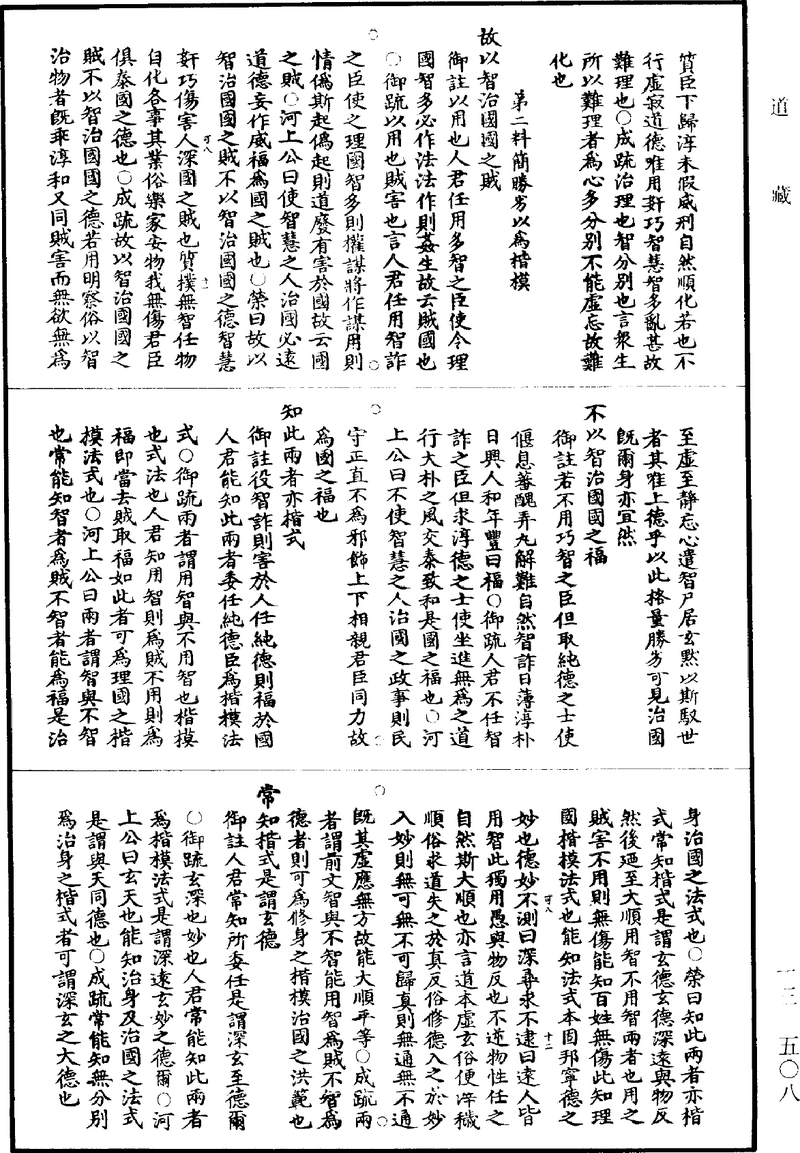 道藏
一三 五〇八
質臣下歸淳未假威刑自然順化若也不
行虛寂道德唯用奸巧智慧智多亂甚故
難理也〇成疏治理也智分別也言衆生
所以難理者為心多分別不能虛忘故難
化也
第二料簡勝劣以為楷模
故以智治國國之賊
御註以用也人君任用多智之臣使令理
國智多必作法法作則姦生故云賊國也
〇御疏以用也賊害也言人君任用智詐
之臣使之理國智多則權謀將作謀用則
情偽斯起偽起則道廢有害於國故云國
之賊〇河上公曰使智慧之人治國必遠
道德妄作威福為國之賊也〇榮曰故以
智治國國之賊不以智治國國之德智慧
奸巧傷害人深國之賊也質撲無智任物
自化各事其業俗樂家安物我無傷君臣
俱泰國之德也〇成疏故以智治國國之
賊不以智治國國之德若用明察俗以智
治物者既乖淳和又同賊害而無欲無為
至虛至靜忘心遣智尸居玄默以斯馭世
者其唯上德乎以此格量勝劣可見治國
既爾身亦宜然
不以智治國國之福
御註若不用巧智之臣但取純德之士使
偃息善醜弄丸解難自然智詐日薄淳朴
日興人和年豐曰福〇御疏人君不任智
詐之臣但求淳德之士使坐進無為之道
行大朴之風交泰致和是國之福也〇河
上公曰不使智慧之人治國之政事則民
守正直不為邪飾上下相親君臣同力故
為國之福也
知此兩者亦楷式
御註役智詐則害於人任純德則福於國
人君能知此兩者委任純德臣為楷模法
式〇御疏兩者謂用智與不用智也楷模
也式法也人君知用智則為賊不用則為
福即當去賊取福如此者可為理國之楷
模法式也〇河上公曰兩者謂智與不智
也常能知智者為賊不智者能為福是治
身治國之法式也〇榮曰知此兩者亦楷
式常知楷式是謂玄德玄德深遠與物反
然後迺至大順用智不用智兩者也用之
賊害不用則無傷能知百姓無傷此知理
國楷模法式也能知法式本固邦寧德之
妙也德妙不測曰深尋求不逮曰遠人皆
用智此獨用愚與物反也不逆物性任之
自然斯大順也亦言道本虛玄俗便滓穢
順俗求道失之於真反俗修德入之於妙
入妙則無可無不可歸真則無通無不通
既其虛應無方故能大順平等〇成疏兩
者謂前文智與不智能用智為賊不智為
德者則可為修身之楷模治國之洪範也
常知楷式是謂玄德
御註人君常知所委任是謂深玄至德爾
〇御疏玄深也妙也人君常能知此兩者
為楷模法式是謂深遠玄妙之德爾〇河
上公曰玄天也能知治身及治國之法式
是謂與天同德也〇成疏常能知無分別
為治身之楷式者可謂深玄之大德也